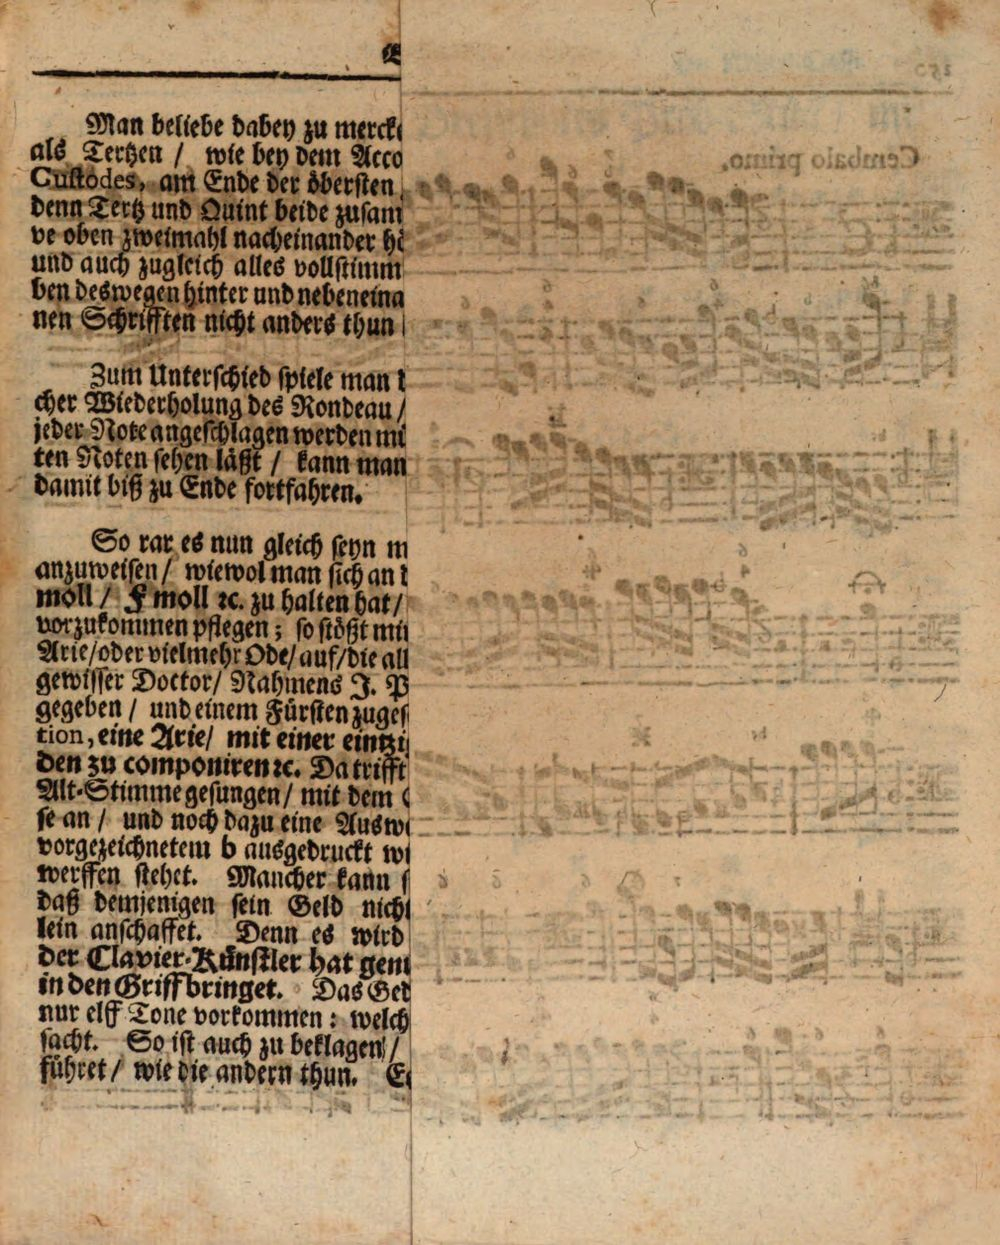 Man beliebe dabey zu merck
als Tertzen / wie bey dem Acco
Custodes, am Ende der öbersten
denn Tertz und Quint beide zusam
ve oben zweimahl nacheinander
und auch zugleich alles vollstimm
ben deswegen hinter und nebeneina
nen Schrifften nicht anders thun
Zum Unterschied spiele man
cher Wiederholung des Rondeau /
jeder Note angeschlagen werden
ten Noten sehen läßt / kann man
damit biß zu Ende fortfahren.
So rar es nun gleich seyn
anzuweisen / wiewol man sich an
moll / F moll ꝛc. zu halten hat /
vorzukommen pflegen; so stößt
Arie / oder vielmehr Ode / auf / die all
gewisser Doctor / Nahmens J. P
gegeben / und einem Fürsten zuges
tion, eine Arie / mit einer eintzi
den zu componiren ꝛc. Da trifft
Alt-Stimme gesungen / mit dem
se an / und noch dazu eine Ausw
vorgezeichnetem b ausgedruckt
werffen stehet. Mancher kann
daß demjenigen sein Geld nich
lein anschaffet. Denn es wird
der Clavier-Künstler hat gem
in den Griff bringet. Das Ged
nur elff Tone vorkommen: welch
sacht. So ist auch zu beklagen /
führet / wie die andern thun.
Cembalo primo.